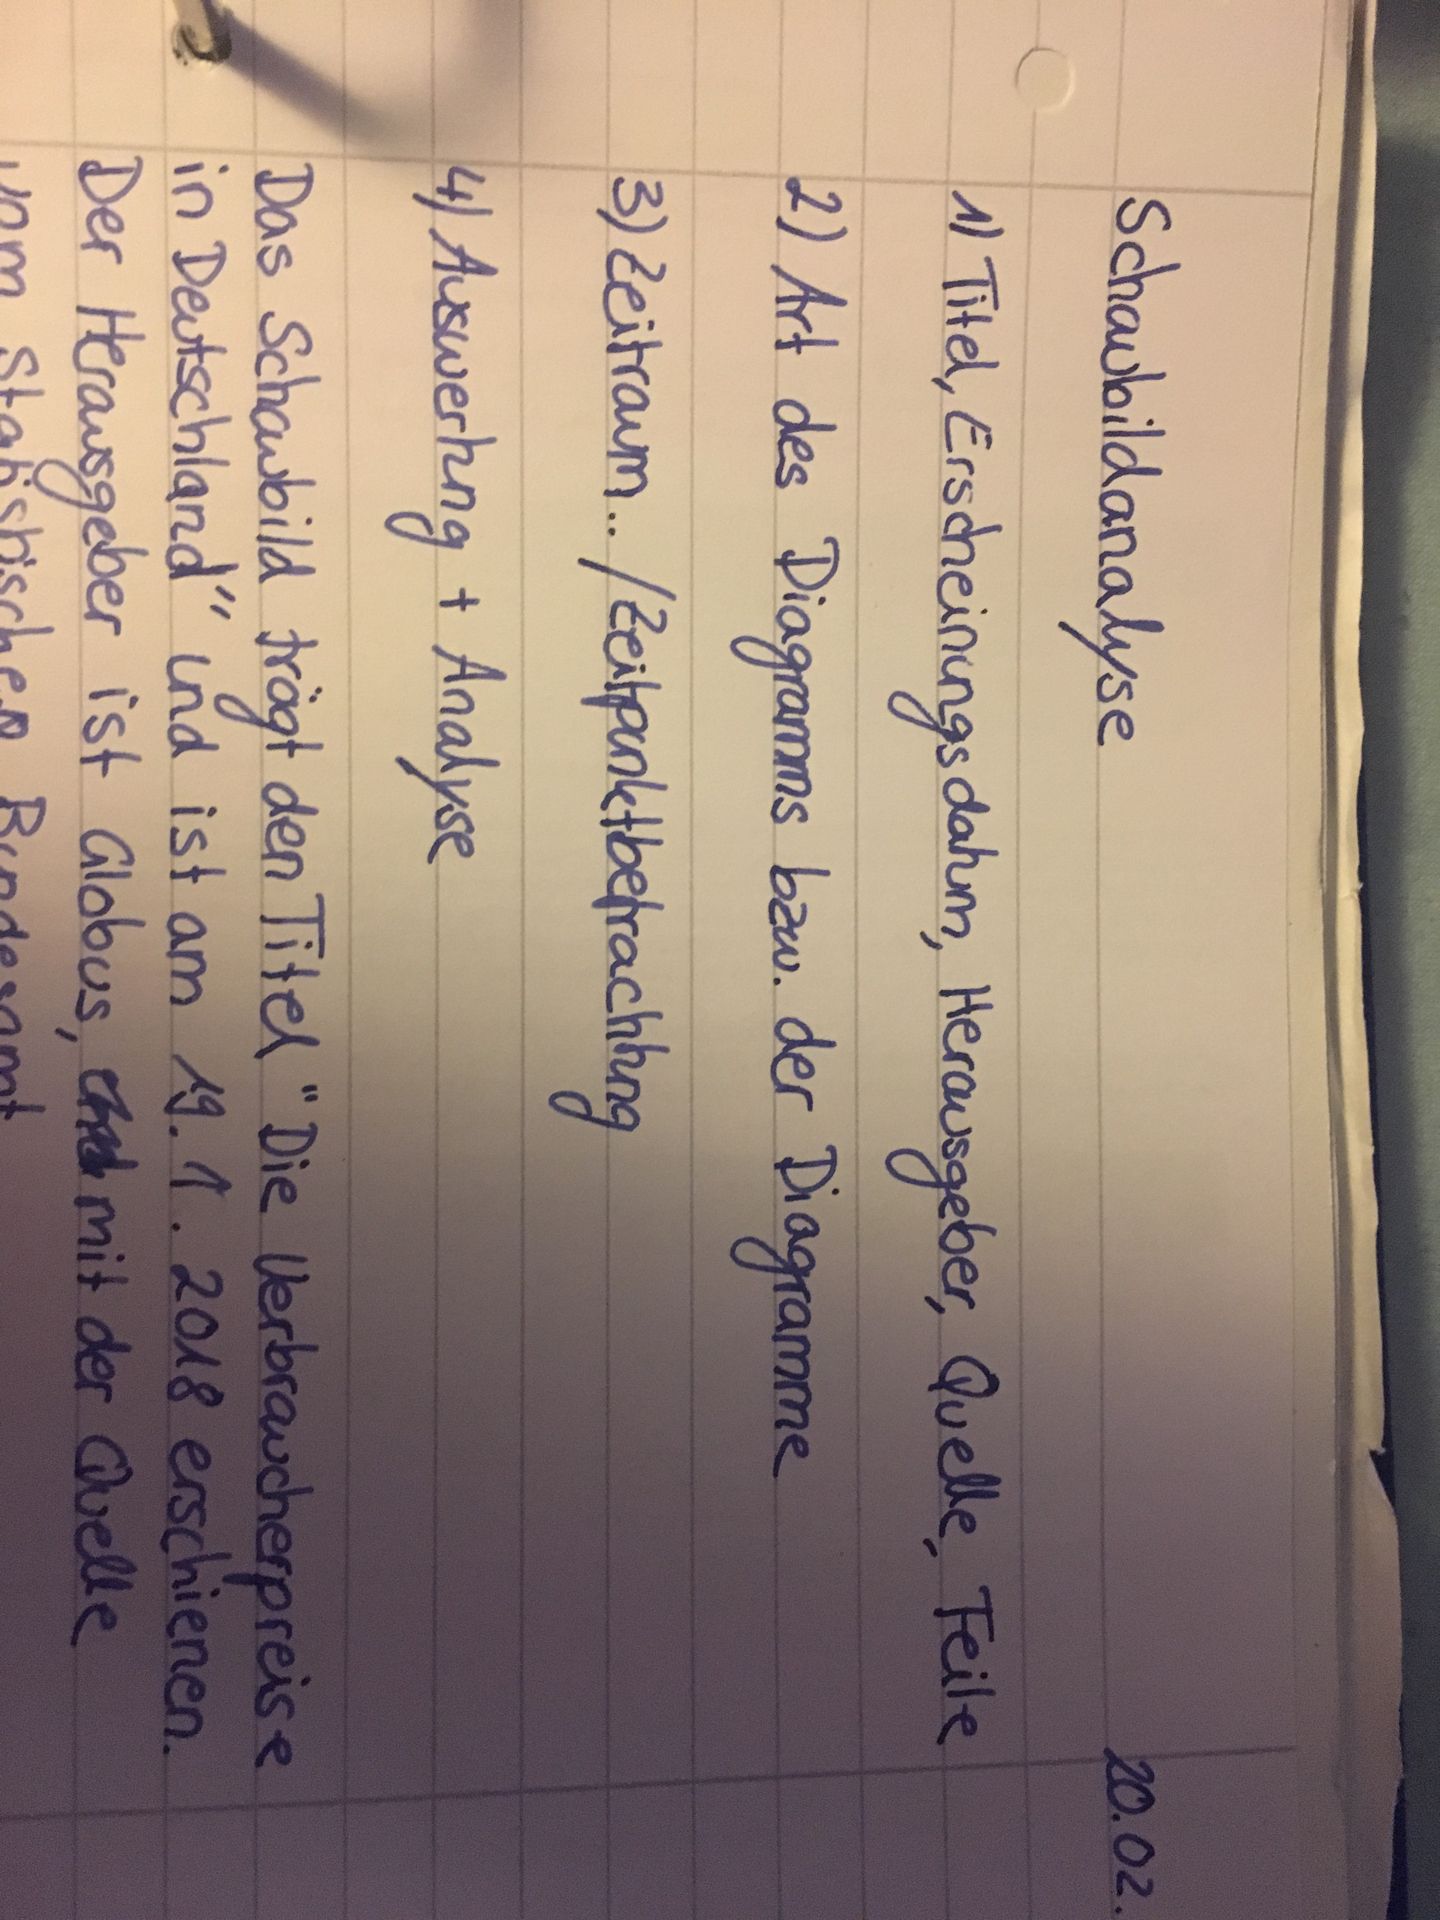 Schaubildanalyse 20.02.
1) Titel, Erscheinungsdatum, Herausgeber, Quelle, Teile
2) Art des Diagramms bzw. der Diagramme
3) Zeitraum.. / Zeitpunktbetrachtung
4) Auswertung + Analyse
Das Schaubild trägt den Titel "Die Verbraucherpreise
in Deutschland" und ist am 19. 1. 2018 erschienen.
Der Herausgeber ist Globus, mit der Quelle
vom Statistischen Bundesamt